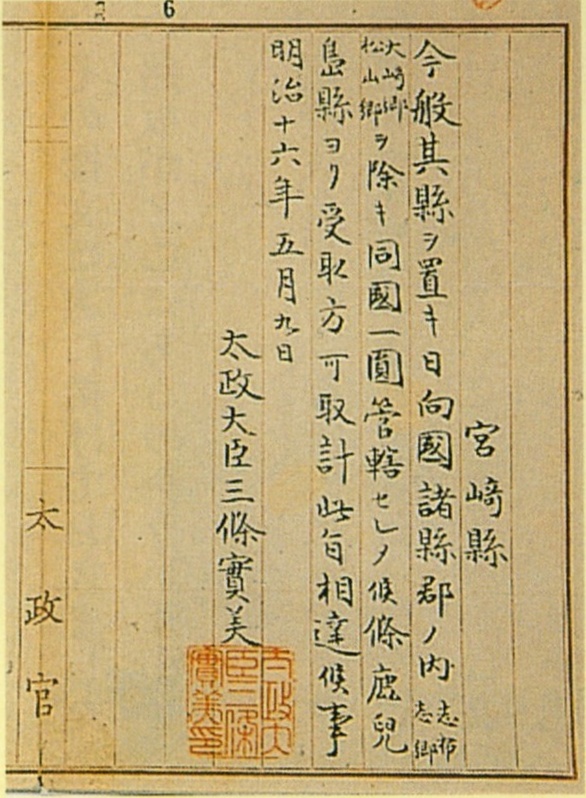 6
宮﨑縣
今般其縣ヲ置キ日向國諸縣郡ノ内志布志郷
大﨑郷松山郷ヲ除キ同國一圓管轄セシメ候條鹿兒
島縣ヨリ受取方可取計此旨相達候事
明治十六年五月九日
太政大臣三條實美
太政大
臣三條
實美印
太政官